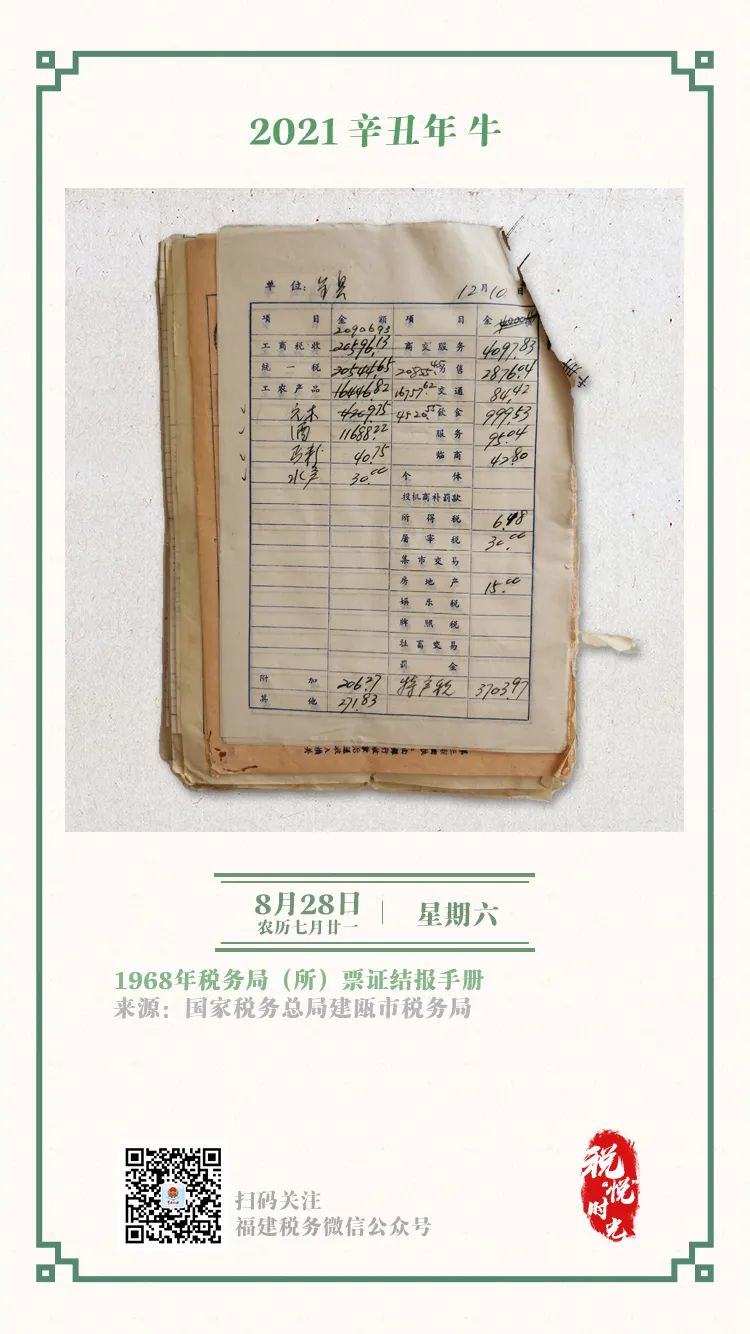 2021 辛丑年 牛
单位：全县 12月10日
项目 金额 项目 金额
209069.3
工商税收 20596.13 商交服务 4097.83
统一税 20544.65 20855.45 另售 2876.04
工农产品 16446.82 16757.62 交通 84.42
元木 4209.75 4520.55 饮食 999.53
酒 11688.22 服务 95.04
40.75 临商 42.80
水产 30.00 个体
投机商补罚款
所得税 6.48
屠宰税 30.00
集市交易
房地产 15.00
娱乐税
牌照税
牲畜交易
罚金
附加 206.27 特产税 3703.97
其他 271.83
8月28日
农历七月廿一
星期六
1968年税务局（所）票证结报手册
来源：国家税务总局建瓯市税务局
扫码关注
福建税务微信公众号
税
"悦"
时
光